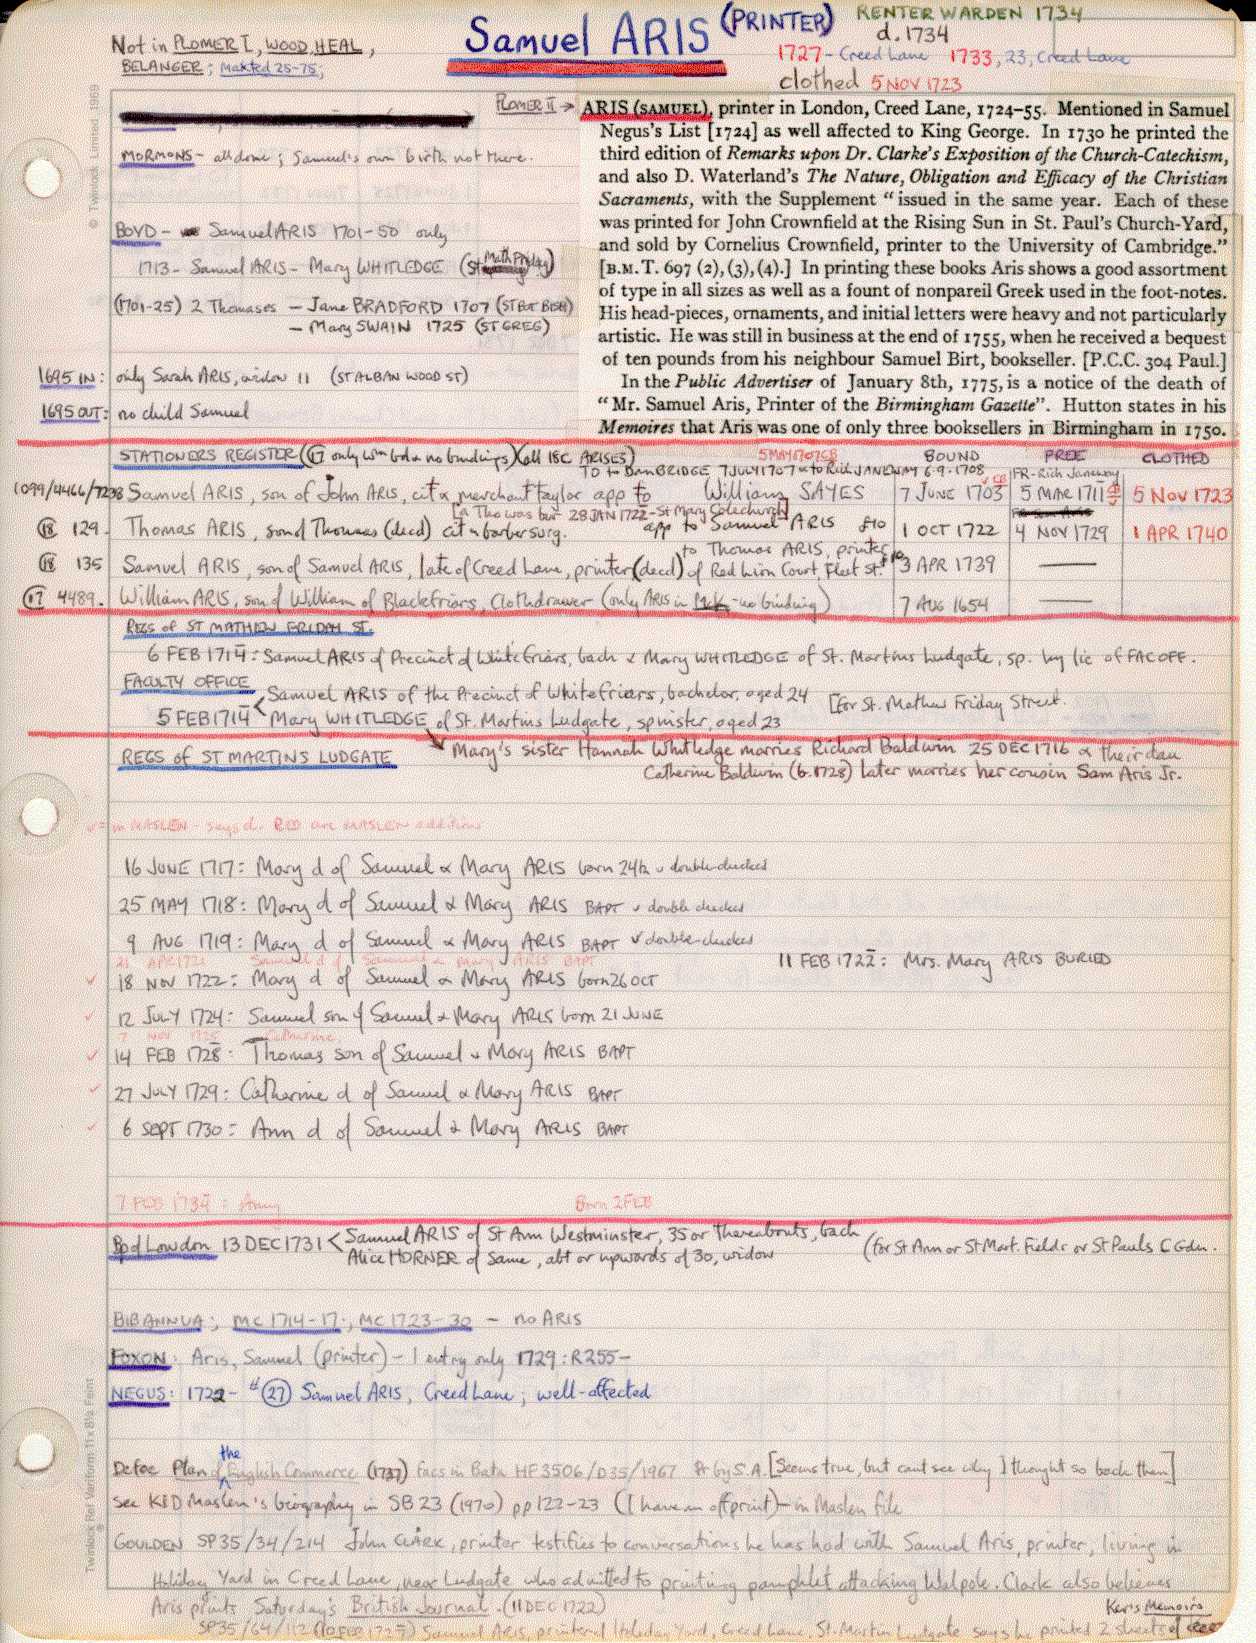 Samuel ARIS (PRINTER)
RENTER WARDEN 1734
d. 1734
1727 - Creed Lane 1733, 23, Creed Lane
clothed 5 NOV 1723
Not in PLOMER I, WOOD, HEAL,
BELANGER; Maxted 25-75;
PLOMER II →
ARIS (SAMUEL), printer in London, Creed Lane, 1724–55. Mentioned in Samuel
Negus's List [1724] as well affected to King George. In 1730 he printed the
third edition of Remarks upon Dr. Clarke's Exposition of the Church-Catechism,
and also D. Waterland's The Nature, Obligation and Efficacy of the Christian
Sacraments, with the Supplement "issued in the same year. Each of these
was printed for John Crownfield at the Rising Sun in St. Paul's Church-Yard,
and sold by Cornelius Crownfield, printer to the University of Cambridge."
[B.M.T. 697 (2), (3), (4).] In printing these books Aris shows a good assortment
of type in all sizes as well as a fount of nonpareil Greek used in the foot-notes.
His head-pieces, ornaments, and initial letters were heavy and not particularly
artistic. He was still in business at the end of 1755, when he received a bequest
of ten pounds from his neighbour Samuel Birt, bookseller. [P.C.C. 304 Paul.]
In the Public Advertiser of January 8th, 1775, is a notice of the death of
"Mr. Samuel Aris, Printer of the Birmingham Gazette". Hutton states in his
Memoires that Aris was one of only three booksellers in Birmingham in 1750.
MORMONS - all done; Samuel's own birth not there.
BOYD - Samuel ARIS 1701-50 only
1713 - Samuel ARIS - Mary WHITLEDGE (St Math Friday)
(1701-25) 2 Thomases - Jane BRADFORD 1707 (ST BOT BISH)
- Mary SWAIN 1725 (ST GREG)
1695 IN: only Sarah ARIS, widow 11 (ST ALBAN WOOD ST)
1695 OUT: no child Samuel
STATIONERS REGISTER (17 only Wm bd & no bindings) (all 18C ARISES)
5 MAY 1707 CB
BOUND FREE CLOTHED
TO to Dan BRIDGE 7 JULY 1707 & to Rich JANEWAY 6.9.1708
FR - Rich Janeway
1099/4466/7238 Samuel ARIS, son of John ARIS, cit & merchant taylor app to William SAYES 7 JUNE 1703 5 MAR 1711 5 NOV 1723
[a Tho was bur 28 JAN 1722 - St Mary Colechurch]
(18) 129. Thomas ARIS, son of Thomas (decd) cit & barbersurg. app to Samuel ARIS £10 1 OCT 1722 4 NOV 1729 1 APR 1740
to Thomas ARIS, printer
(18) 135 Samuel ARIS, son of Samuel ARIS, late of Creed Lane, printer (decd) of Red Lion Court, Fleet St. 3 APR 1739
(17) 4489. William ARIS, son of William of Blackfriars, Clothdrawer (only ARIS in McK - no binding) 7 AUG 1654
REGS of ST MATHEW FRIDAY ST.
6 FEB 1714: Samuel ARIS of Precinct of Whitefriars, bach & Mary WHITLEDGE of St. Martins Ludgate, sp. by lic of FAC OFF.
FACULTY OFFICE
Samuel ARIS of the Precinct of Whitefriars, bachelor, aged 24 [For St. Mathew Friday Street.
5 FEB 1714
Mary WHITLEDGE of St. Martins Ludgate, spinster, aged 23
REGS of ST MARTINS LUDGATE
Mary's sister Hannah Whitledge marries Richard Baldwin 25 DEC 1716 & their dau
Catherine Baldwin (b. 1728) later marries her cousin Sam Aris Jr.
✓ = in MASLEN - says d. RED are MASLEN additions
16 JUNE 1717: Mary d of Samuel & Mary ARIS born 24th ✓ double-checked
25 MAY 1718: Mary d of Samuel & Mary ARIS BAPT ✓ double checked
9 AUG 1719: Mary d of Samuel & Mary ARIS BAPT ✓ double-checked
21 APR 1721 Samuel d of Samuel & Mary ARIS BAPT
11 FEB 1722: Mrs. Mary ARIS BURIED
✓ 18 NOV 1722: Mary d of Samuel & Mary ARIS born 26 OCT
✓ 12 JULY 1724: Samuel son of Samuel & Mary ARIS born 21 JUNE
7 NOV 1725 Catharine
✓ 14 FEB 1728: Thomas son of Samuel & Mary ARIS BAPT
✓ 27 JULY 1729: Catherine d of Samuel & Mary ARIS BAPT
✓ 6 SEPT 1730: Ann d of Samuel & Mary ARIS BAPT
7 FEB 1734: Amy Born 2 FEB
Bp of London 13 DEC 1731
Samuel ARIS of St Ann Westminster, 35 or thereabouts, bach
Alice HORNER of same, abt or upwards of 30, widow
(for St Ann or St Mart. Fields or St Pauls C Gdn.
BIB ANNUA; MC 1714-17; MC 1723-30 - no ARIS
FOXON: Aris, Samuel (printer) - 1 entry only 1729: R255-
NEGUS: 1722 - # (27) Samuel ARIS, Creed Lane; well-affected
Defoe Plan of the English Commerce (1737) facs in Bata HF 3506/D35/1967 Pr by S.A. [Seems true, but cant see why I thought so back then]
see KID Maslen's biography in SB 23 (1970) pp 122-23 (I have an offprint) - in Maslen file
GOULDEN SP35/34/214 John CLARK, printer testifies to conversations he has had with Samuel Aris, printer, living in
Holiday Yard in Creed Lane, near Ludgate who admitted to printing pamphlet attacking Walpole. Clark also believes
Aris prints Saturday's British Journal. (11 DEC 1722)
Ker's Memoirs
SP35/64/112 (10 FEB 1727) Samuel Aris, printer of Holiday Yard, Creed Lane, St. Martin Ludgate says he printed 2 sheets of
© Twinlock Limited 1969
Twinlock Ref Variform 11 x 8½ Feint